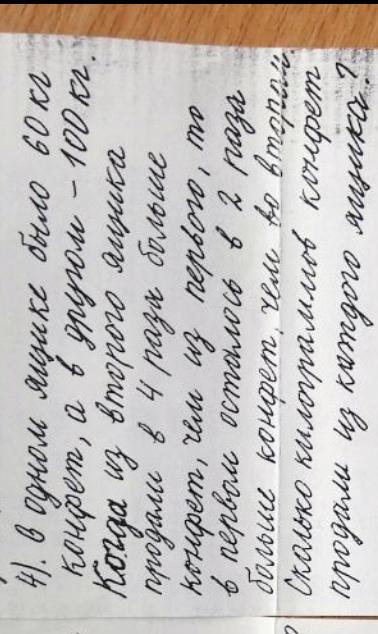 4). В одном ящике было 60 кг
конфет, а в другом – 100 кг.
Когда из второго ящика
продали в 4 раза больше
конфет, чем из первого, то
в первом осталось в 2 раза
больше конфет, чем во втором.
Сколько килограммов конфет
продали из каждого ящика?